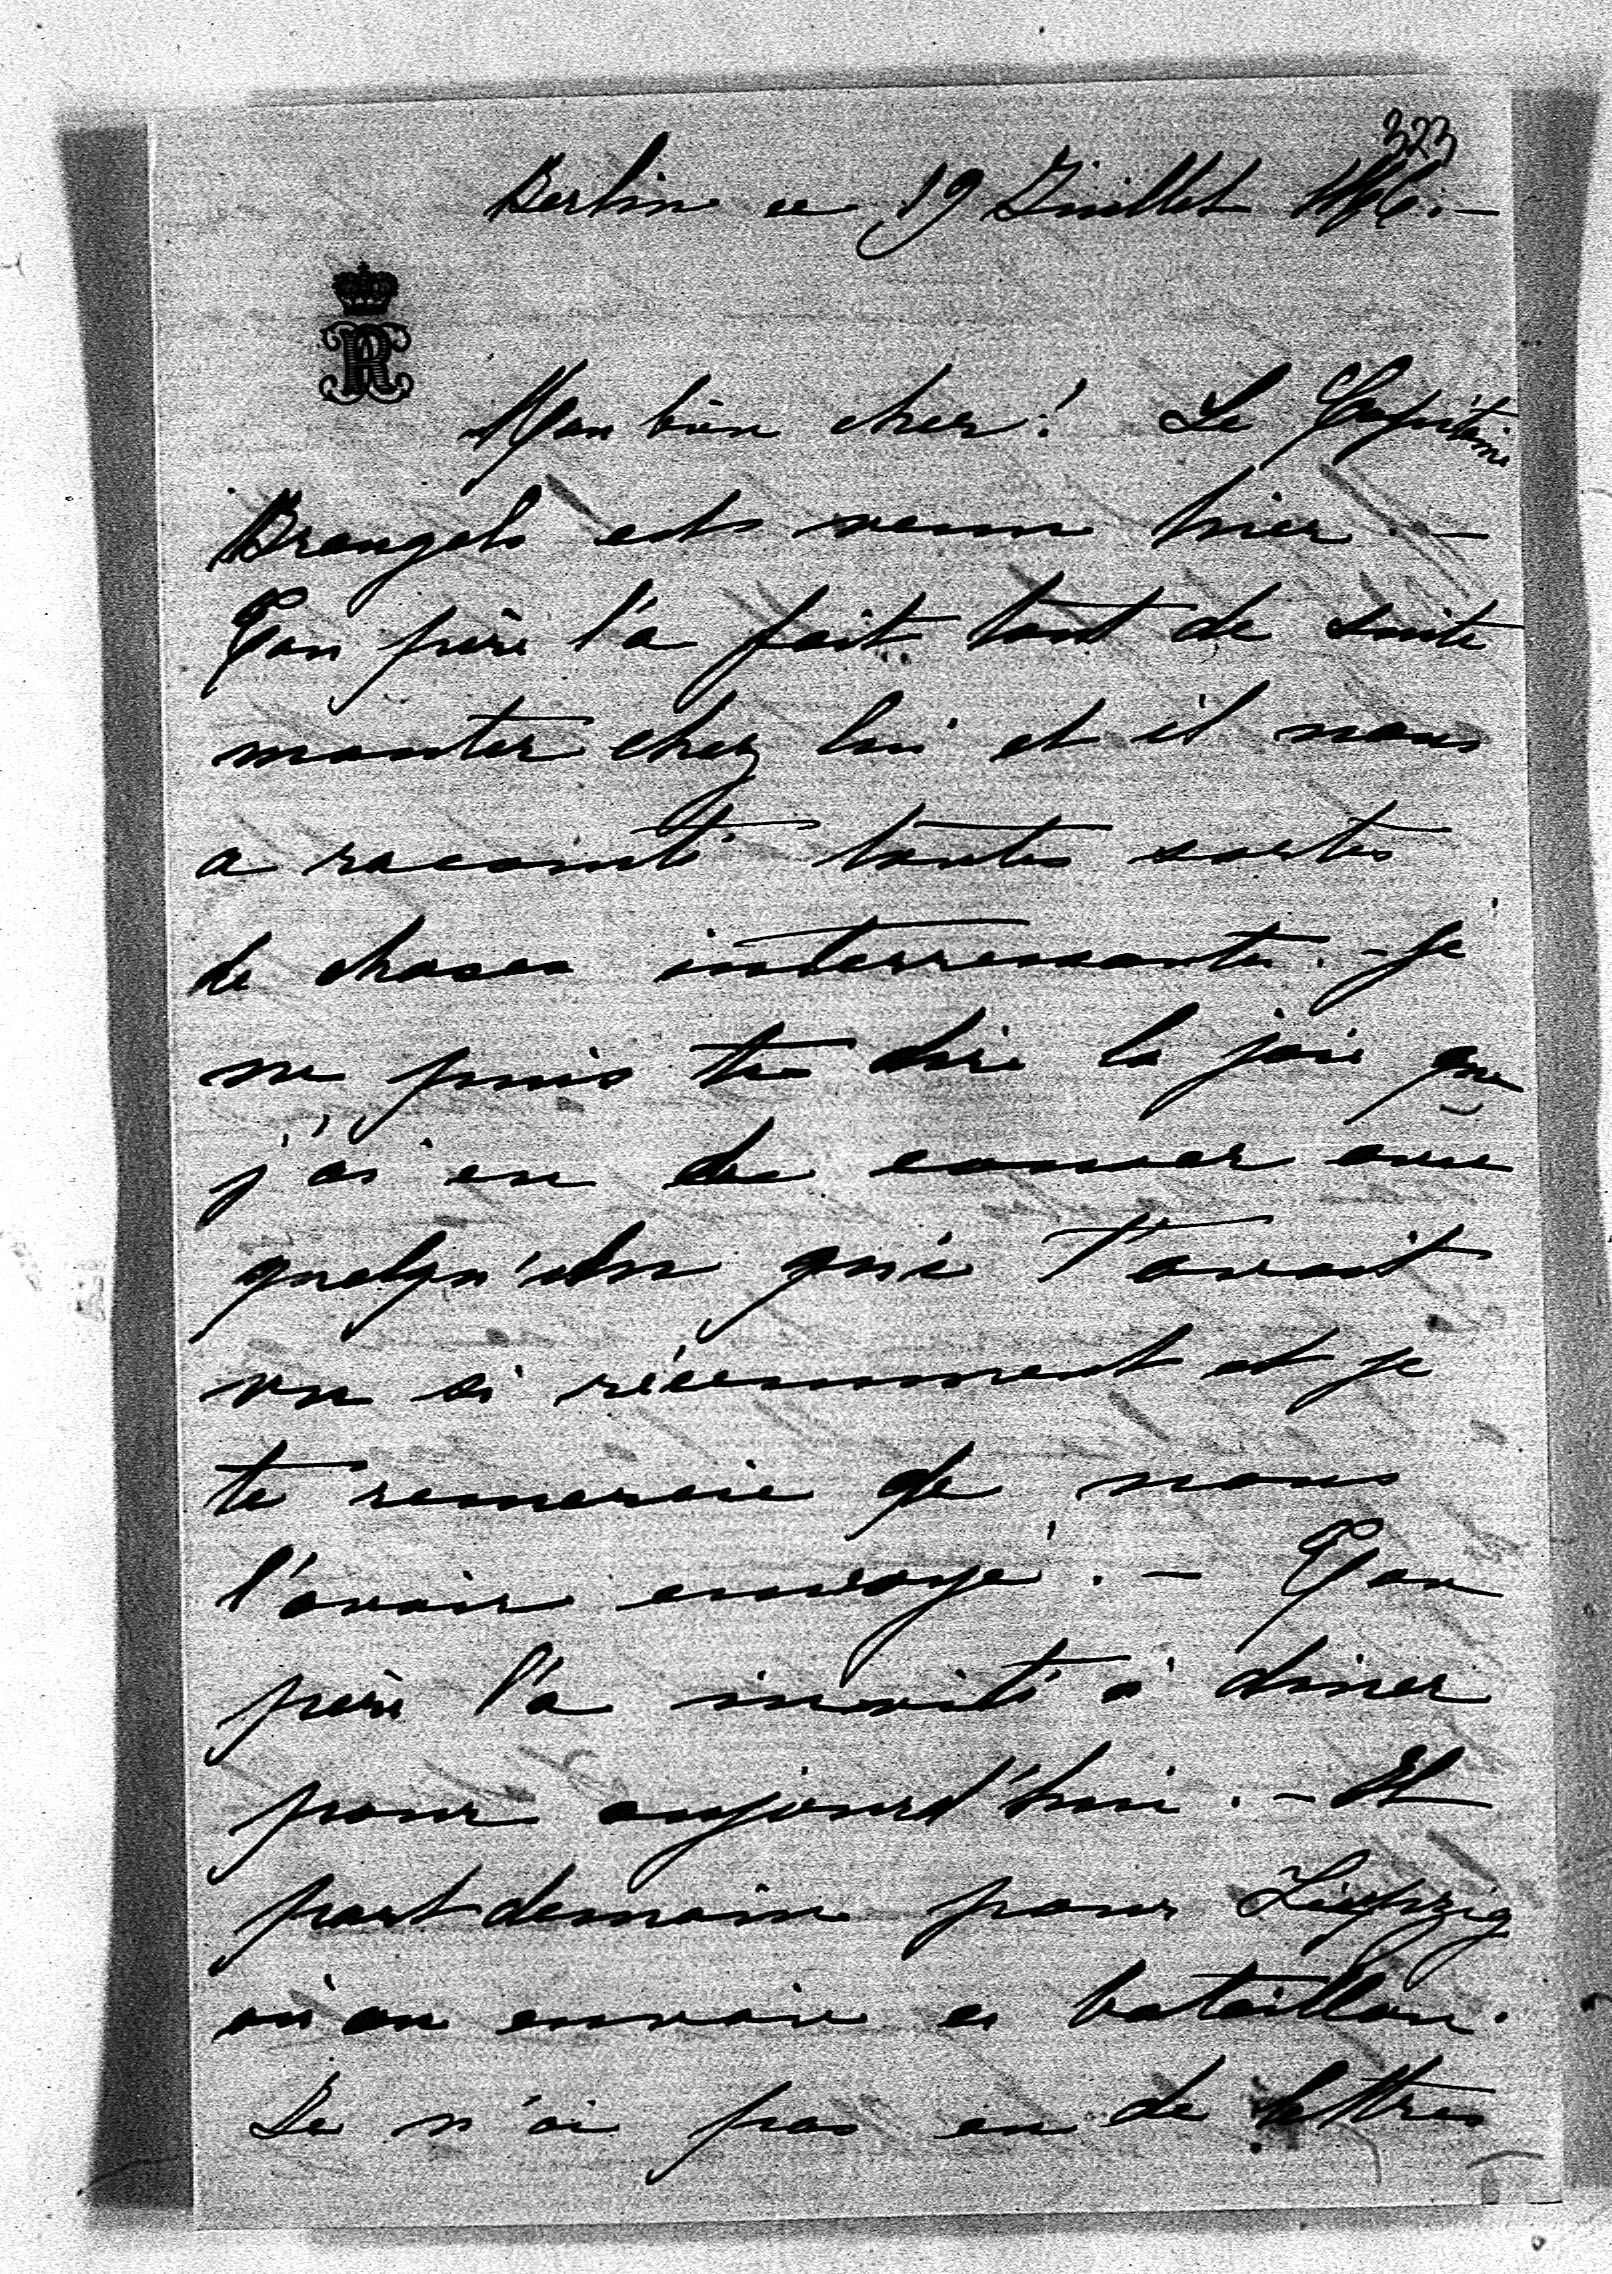 323
Berlin ce 19 Juillet 1866.-
Mon bien cher! Le Capitaine
Brangels est venu hier. -
Ton père l'a fait tout de suite
monter chez lui et il nous
a raconté toutes sortes
de choses interressantes. - Je
ne puis te dire la joie que
j'ai eu de causer avec
quelqu'un qui t'avait
vu si récemment et je
te remercie de nous
l'avoir envoyé. - Ton
père l'a invité à diner
pour aujourd'hui. - Il
part demain pour Leipzig
où on envoie ce bataillon.
Je n'ai pas eu de lettres